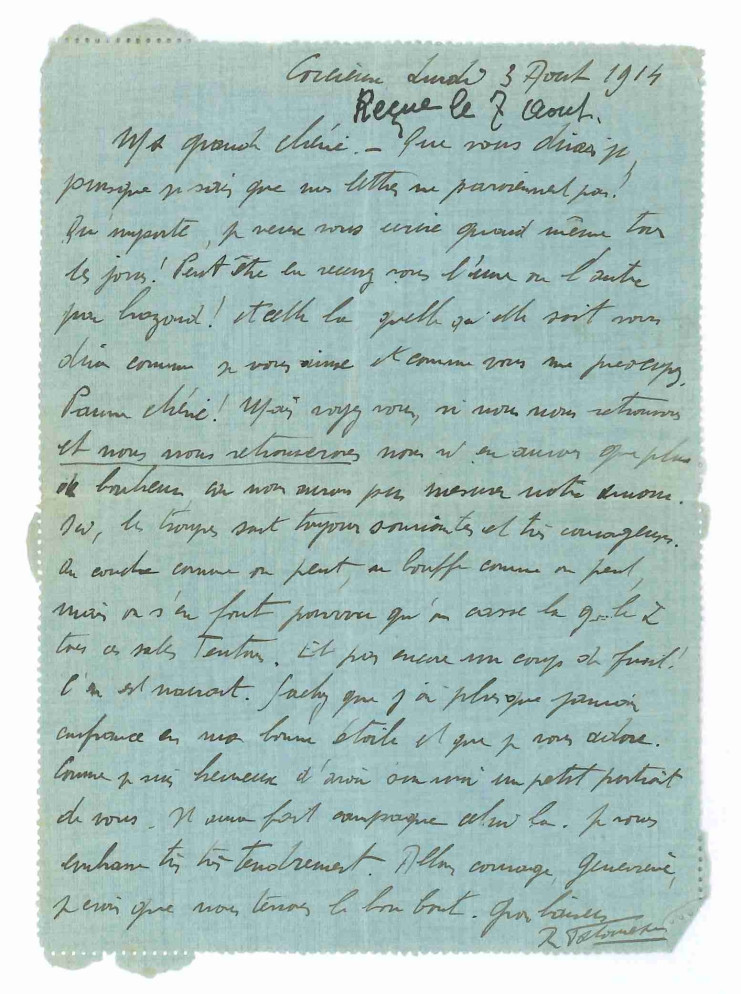 Corcieux Lundi 3 Aout 1914
Reçue le 7 Aout.
Ma grande chérie. – Que vous dirai je,
puisque je sais que mes lettres ne parviennent pas!
Qu'importe, je veux vous écrire quand même tous
les jours! Peut être en recevrez vous l'une ou l'autre
par hazard! et celle la quelle qu'elle soit vous
dira comme je vous aime et comme vous me préocupez.
Pauvre chérie! Mais voyez vous, si nous nous retrouvons
et nous nous retrouverons nous n'en aurons que plus
de bonheur car nous aurons pu mesurer notre amour.
Ici, les troupes sont toujours souriantes et très courageuses.
On couche comme on peut, on bouffe comme on peut,
mais on s'en fout pourvu qu'on casse la g..le à
tous ces sales Teutons. Et pas encore un coup de fusil!
C'en est navrant. Sachez que j'ai plus que jamais
confiance en ma bonne étoile et que je vous adore.
Comme je suis heureux d'avoir sur moi un petit portrait
de vous. Il aura fait campagne celui la. Je vous
embrasse très très tendrement. Allons courage, Geneviève,
je crois que nous tenons le bon bout. Gros baisers
R